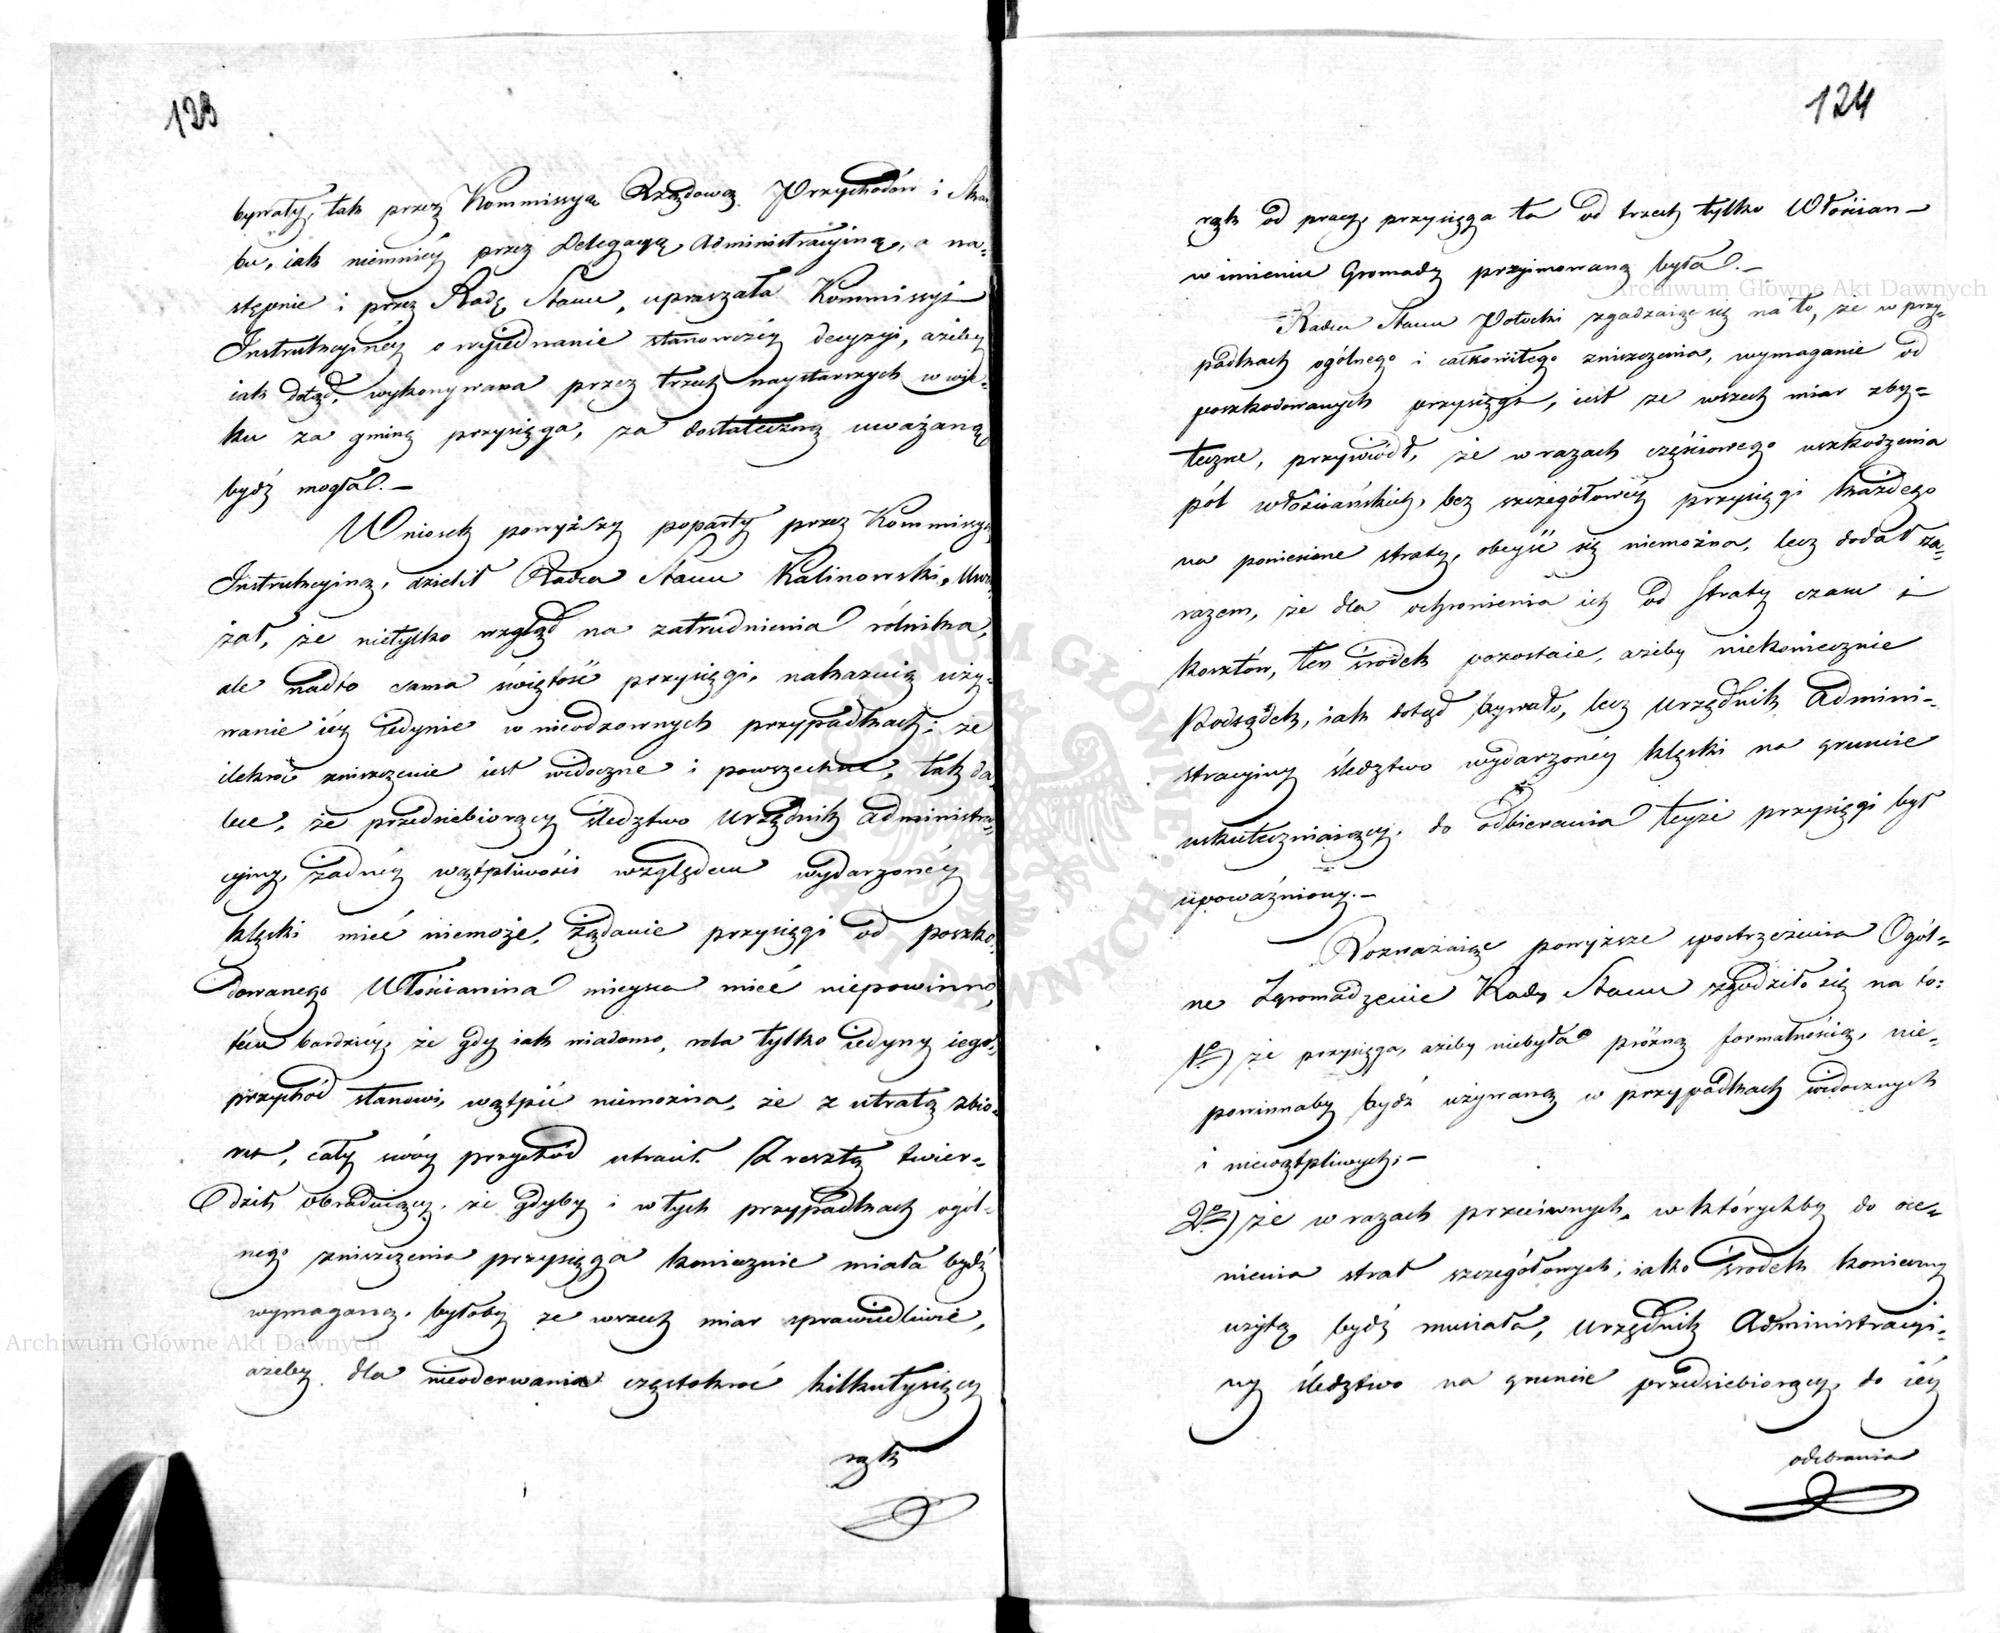 123
bywały, tak przez Kommissyą Rządową Przychodów i Skar
bu, iak niemniéy przez Delegacyą Administracyiną, a na-
stępnie i przez Radę Stanu, upraszała Kommissyi
Instrukcyinéy o wyiednanie stanowczéy decyzyi, ażeby
iak dotąd, wykonywana przez trzech naystarszych w wie-
ku za gminę przysięga, za dostateczną uważaną
bydź mogła.—
Wniosek powyższy poparty przez Kommissyą
Instrukcyiną, dzielił Radca Stanu Kalinowski, Uwa
żał, że nietylko wzgląd na zatrudnienia rólnika,
ale nadto sama świętość przysięgi, nakazuią uży-
wanie iéy iedynie w nieodzownych przypadkach; że
ilekroć zniszczenie iest widoczne i powszechne, tak da
lece, że przedsiebiorący śledztwo Urzędnik Administra-
cyiny, żadnéy wątpliwości względem wydarzonéy
klęski mieć niemoże, żądanie przysięgi od poszko-
dowanego Włościanina mieysca mieć niepowinno,
tém bardziéy, że gdy iak wiadomo, rola tylko iedyny iego
przychód stanowi, wątpić niemożna, że z utratą zbio-
ru, cały swóy przychód utracił. Zresztą twier-
dził obraduiący, że gdyby i w tych przypadkach ogól-
nego zniszczenia przysięga koniecznie miała bydź
wymaganą, byłoby ze wszech miar sprawiedliwie,
ażeby dla nieoderwania częstokroć kilkutysięcy
rąk
124
rąk od pracy, przysięga ta od trzech tylko Włościan—
w imieniu Gromady przyimowaną była.—
Radca Stanu Potocki zgadzaiąc się na to, że w przy-
padkach ogólnego i całkowitego zniszczenia, wymaganie od
poszkodowanych przysięgi, iest ze wszech miar zby-
teczne, przywiódł, że w razach częściowego uszkodzenia
pól włościańskich, bez szczegółowéy przysięgi każdego
na poniesione straty, obeyść się niemożna, lecz dodał za-
razem, że dla ochronienia ich od straty czasu i
kosztów, ten środek pozostaie, ażeby niekoniecznie
Podsędek, iak dotąd bywało, lecz Urzędnik Admini-
stracyiny śledztwo wydarzonéy klęski na gruncie
uskuteczniaiący, do odbierania teyże przysięgi był
upoważniony.—
Rozważaiąc powyższe spostrzeżenia Ogól-
ne Zgromadzenie Rady Stanu zgodziło się na to:
1o) że przysięga, ażeby niebyła próżną formalnością, nie-
powinnaby bydź używaną w przypadkach widocznych
i niewątpliwych;—
2o) że w razach przeciwnych, w którychby do oce-
nienia strat szczegółowych, iako środek konieczny
użytą bydź musiała, Urzędnik Administracyi-
ny śledztwo na gruncie przedsiebiorący, do iéy
odebrania
Archiwum Główne Akt Dawnych
Archiwum Główne Akt Dawnych
ARCHIWUM GŁÓWNE AKT DAWNYCH